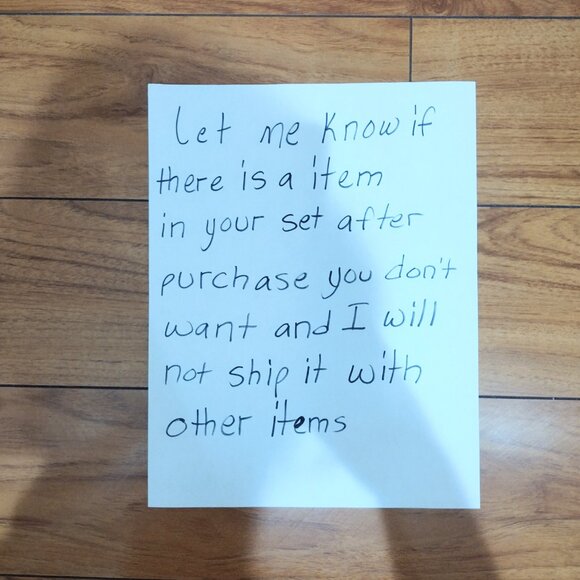 Let me know if
there is a item
in your set after
purchase you don't
want and I will
not ship it with
other items